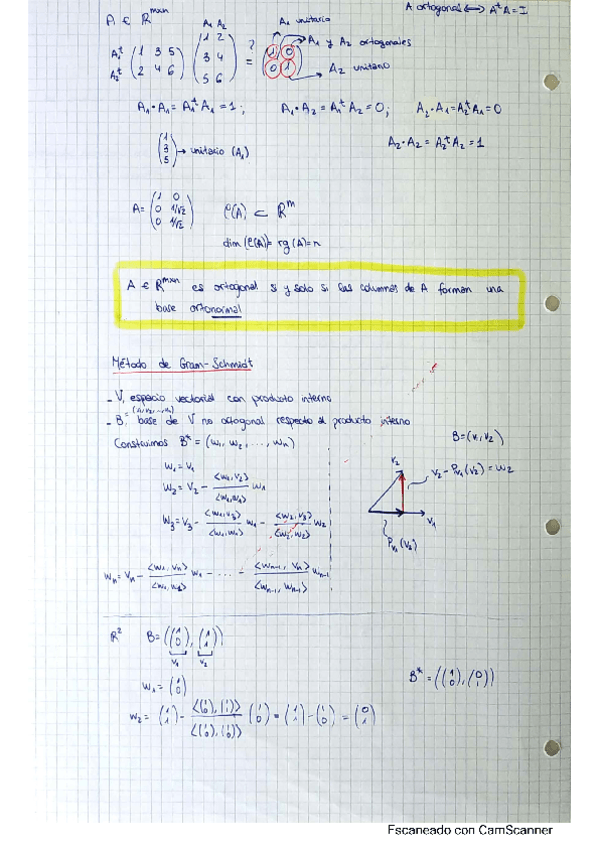 A ∈ ℝ^mxn
A ortogonal ⟷ A^t A = I
A₁ A₂
A₁ unitario
A₁^t (1 3 5) (1 2) ? (1 0) A₁ y A₂ ortogonales
A₂^t (2 4 6) (3 4) = (0 1) A₂ unitario
(5 6)
A₁·A₁ = A₁^t A₁ = 1; A₁·A₂ = A₁^t A₂ = 0; A₂·A₁ = A₂^t A₁ = 0
A₂·A₂ = A₂^t A₂ = 1
(1 3 5) → unitario (A₁)
A = (1 0
0 1/√2
0 1/√2)
C(A) ⊂ ℝ^m
dim (C(A)) = rg (A) = n
A ∈ ℝ^mxn es ortogonal si y solo si las columnas de A forman una
base ortonormal
Método de Gram-Schmidt
- V, espacio vectorial con producto interno
- B=(v₁,v₂,...,vₙ), base de V no ortogonal respecto al producto interno
Construimos B* = (w₁, w₂, ..., wₙ)
B = (v₁, v₂)
w₁ = v₁
w₂ = v₂ - <w₁, v₂>/<w₁, w₁> w₁
w₃ = v₃ - <w₁, v₃>/<w₁, w₁> w₁ - <w₂, v₃>/<w₂, w₂> w₂
v₂
v₂ - P_v₁(v₂) = w₂
v₁
P_v₁(v₂)
wₙ = vₙ - <w₁, vₙ>/<w₁, w₁> w₁ - ... - <wₙ₋₁, vₙ>/<wₙ₋₁, wₙ₋₁> wₙ₋₁
ℝ² B = ((1 0), (1 1))
v₁ v₂
w₁ = (1 0)
B* = ((1 0), (0 1))
w₂ = (1 1) - <(1 0), (1 1)>/<(1 0), (1 0)> (1 0) = (1 1) - (1 0) = (0 1)
Escaneado con CamScanner